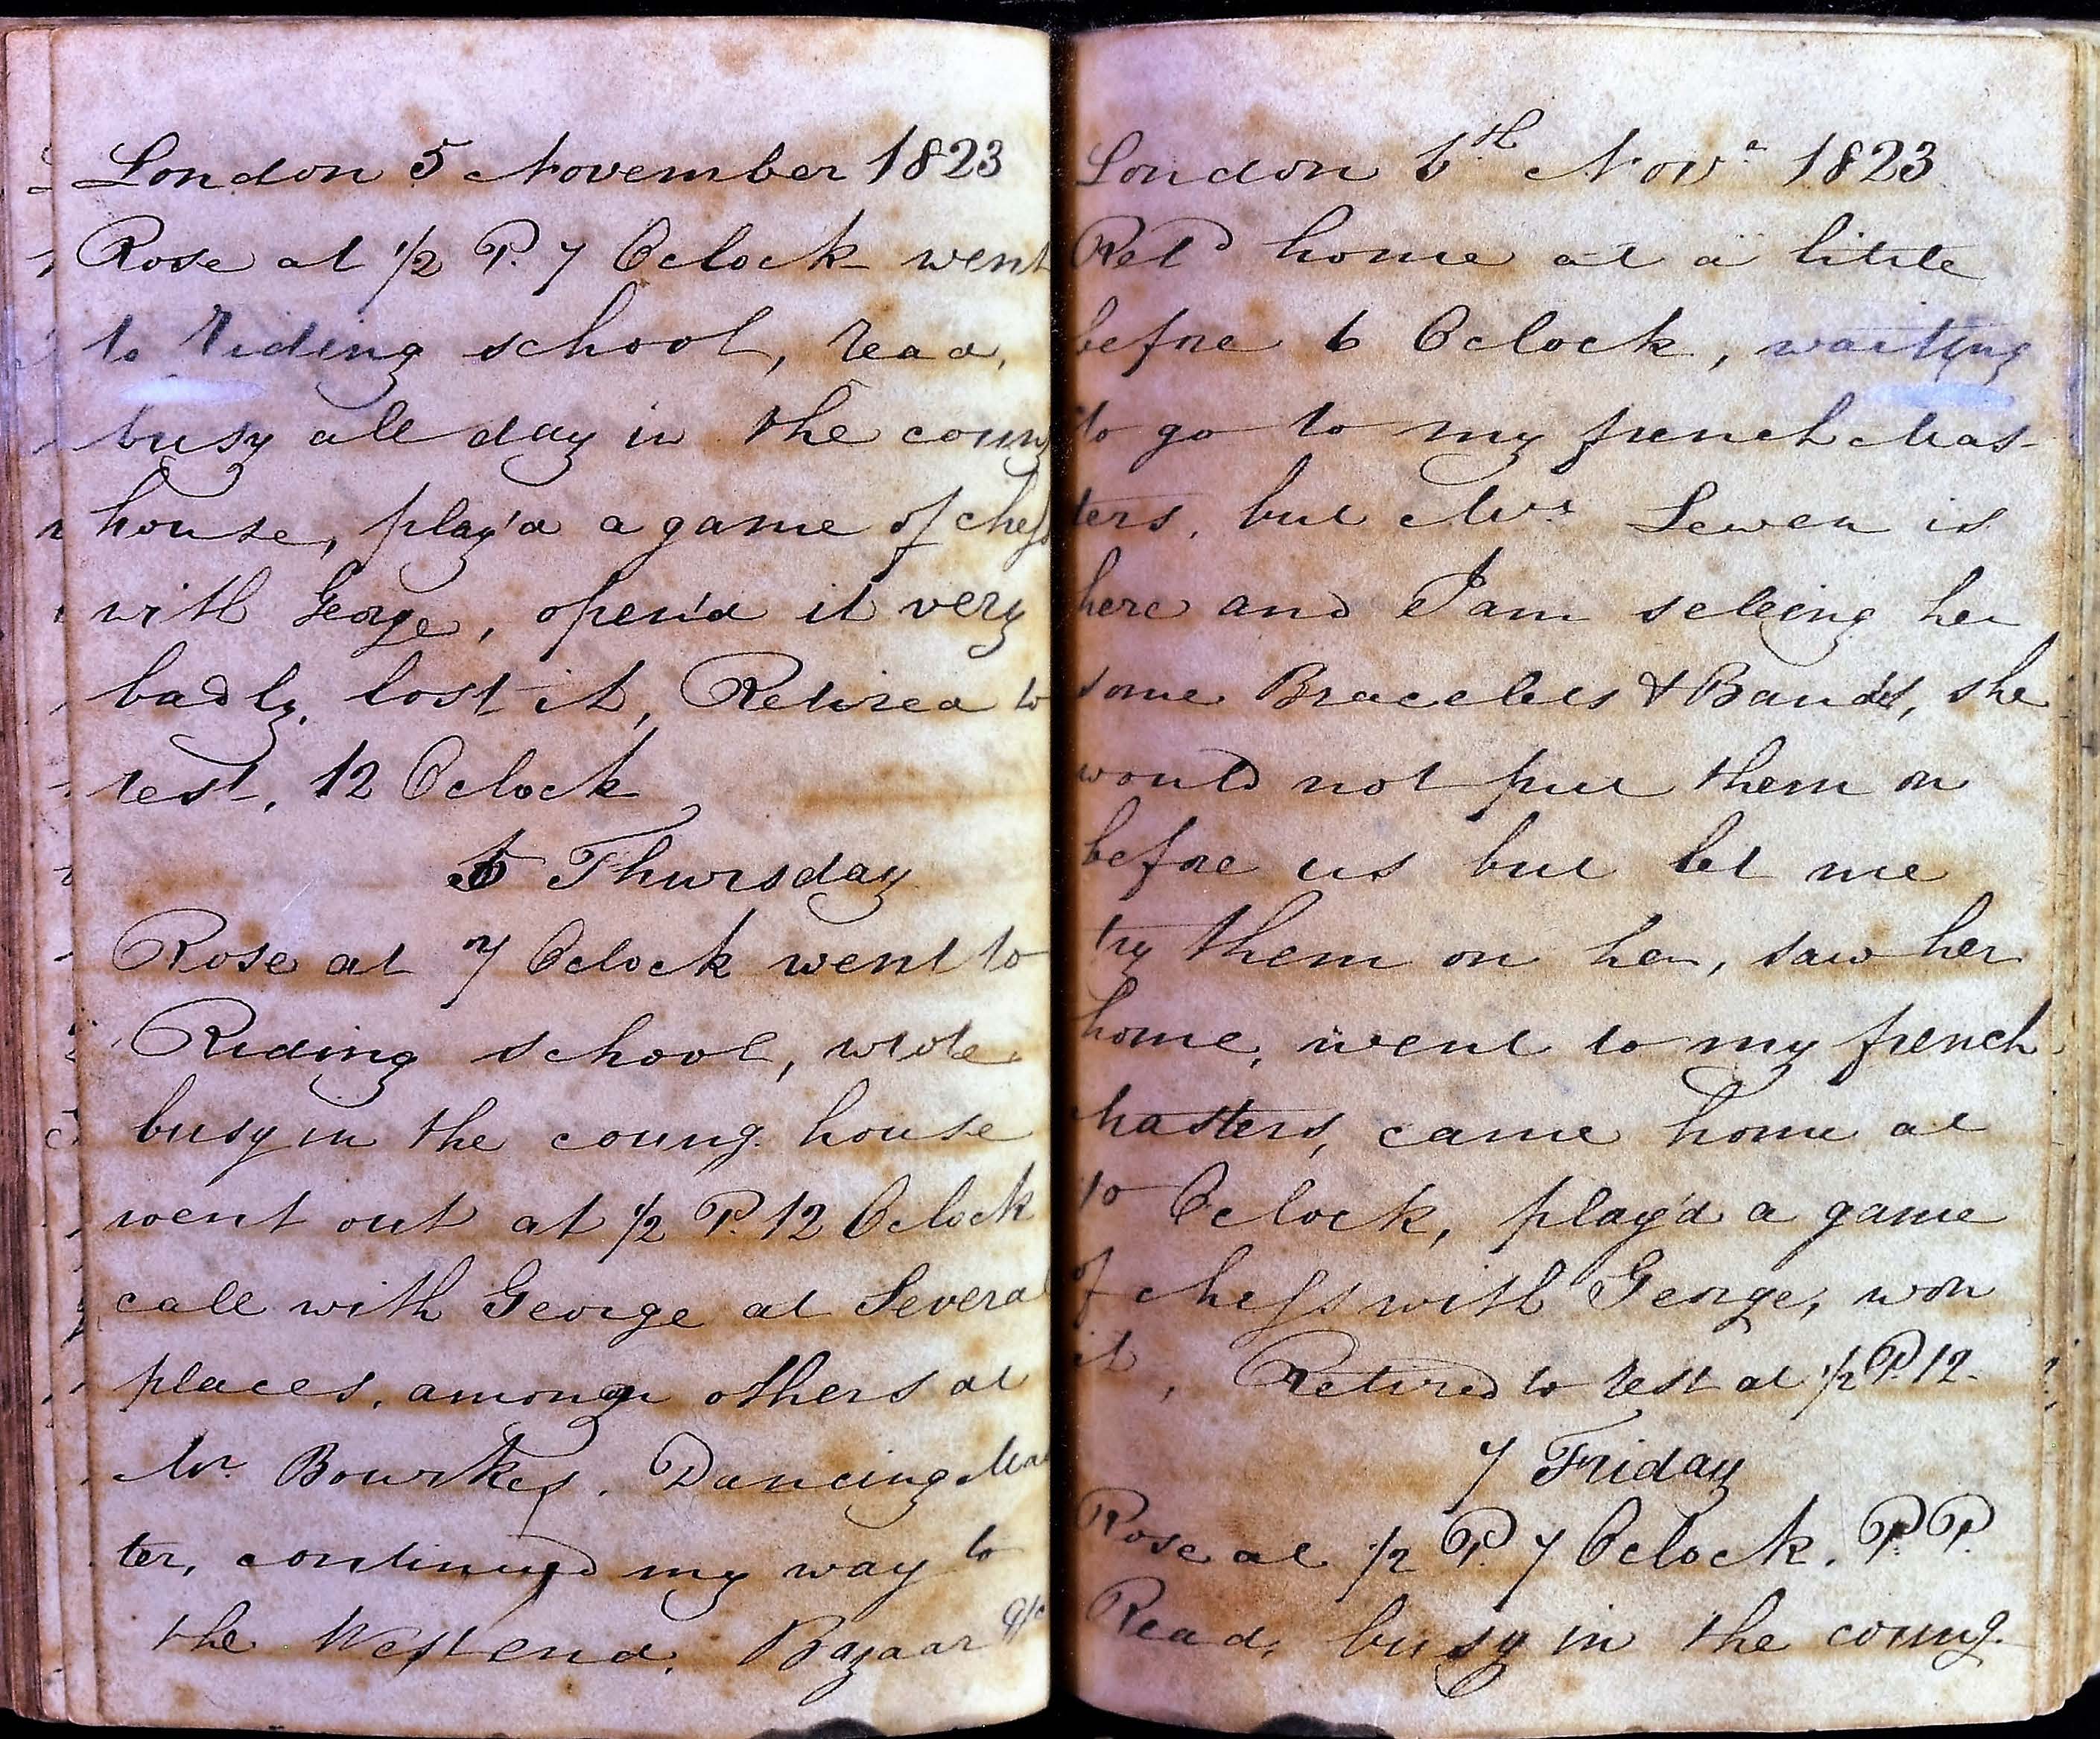 London 5 November 1823
Rose at ½ P. 7 Oclock went
to Riding school, read,
busy all day in the coung
house, play'd a game of chess
with George, open'd it very
badly, lost it, Retired to
rest, 12 Oclock
6 Thursday
Rose at 7 Oclock went to
Riding school, wrote
busy in the coung. house
went out at ½ P. 12 Oclock
call with George at Several
places, among others at
Mr. Bourkes. Dancing Mas
ter, continued my way to
the West end. Bazaar &c
London 6th Novr 1823
Retd home at a little
before 6 Oclock, waiting
to go to my french Mas-
ters, but Mrs Lewen is
here and I am selling her
some Bracelets & Bands, she
would not put them on
before us but let me
try them on her, saw her
home, went to my french
Masters, came home at
10 Oclock, play'd a game
of chess with George, won
it, Retired to rest at ½ P. 12.
7 Friday
Rose at ½ P. 7 Oclock. P. P.
Read, busy in the coung.